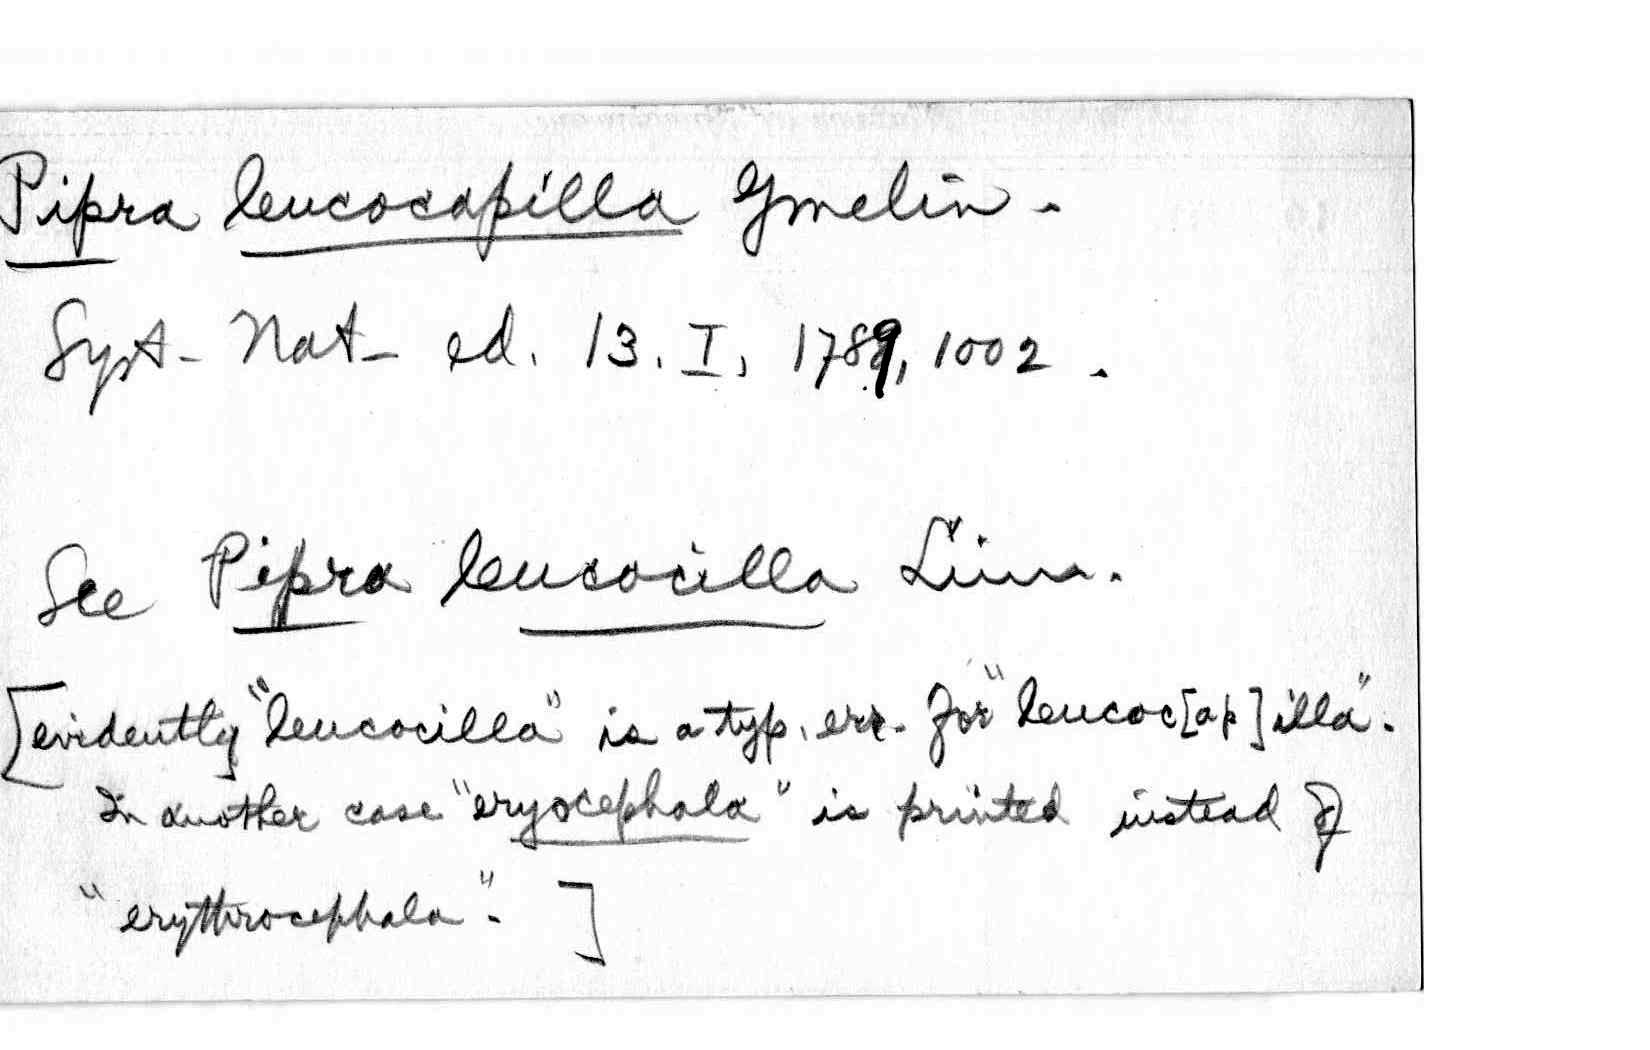 Pipra leucocapilla Gmelin.
Syst. Nat. ed. 13. I, 1789, 1002.
See Pipra leucocilla Linn.
[evidently "leucocilla" is a typ. err. for "leucoc[ap]illa".
In another case "eryocephala" is printed instead of
"erythrocephala".]